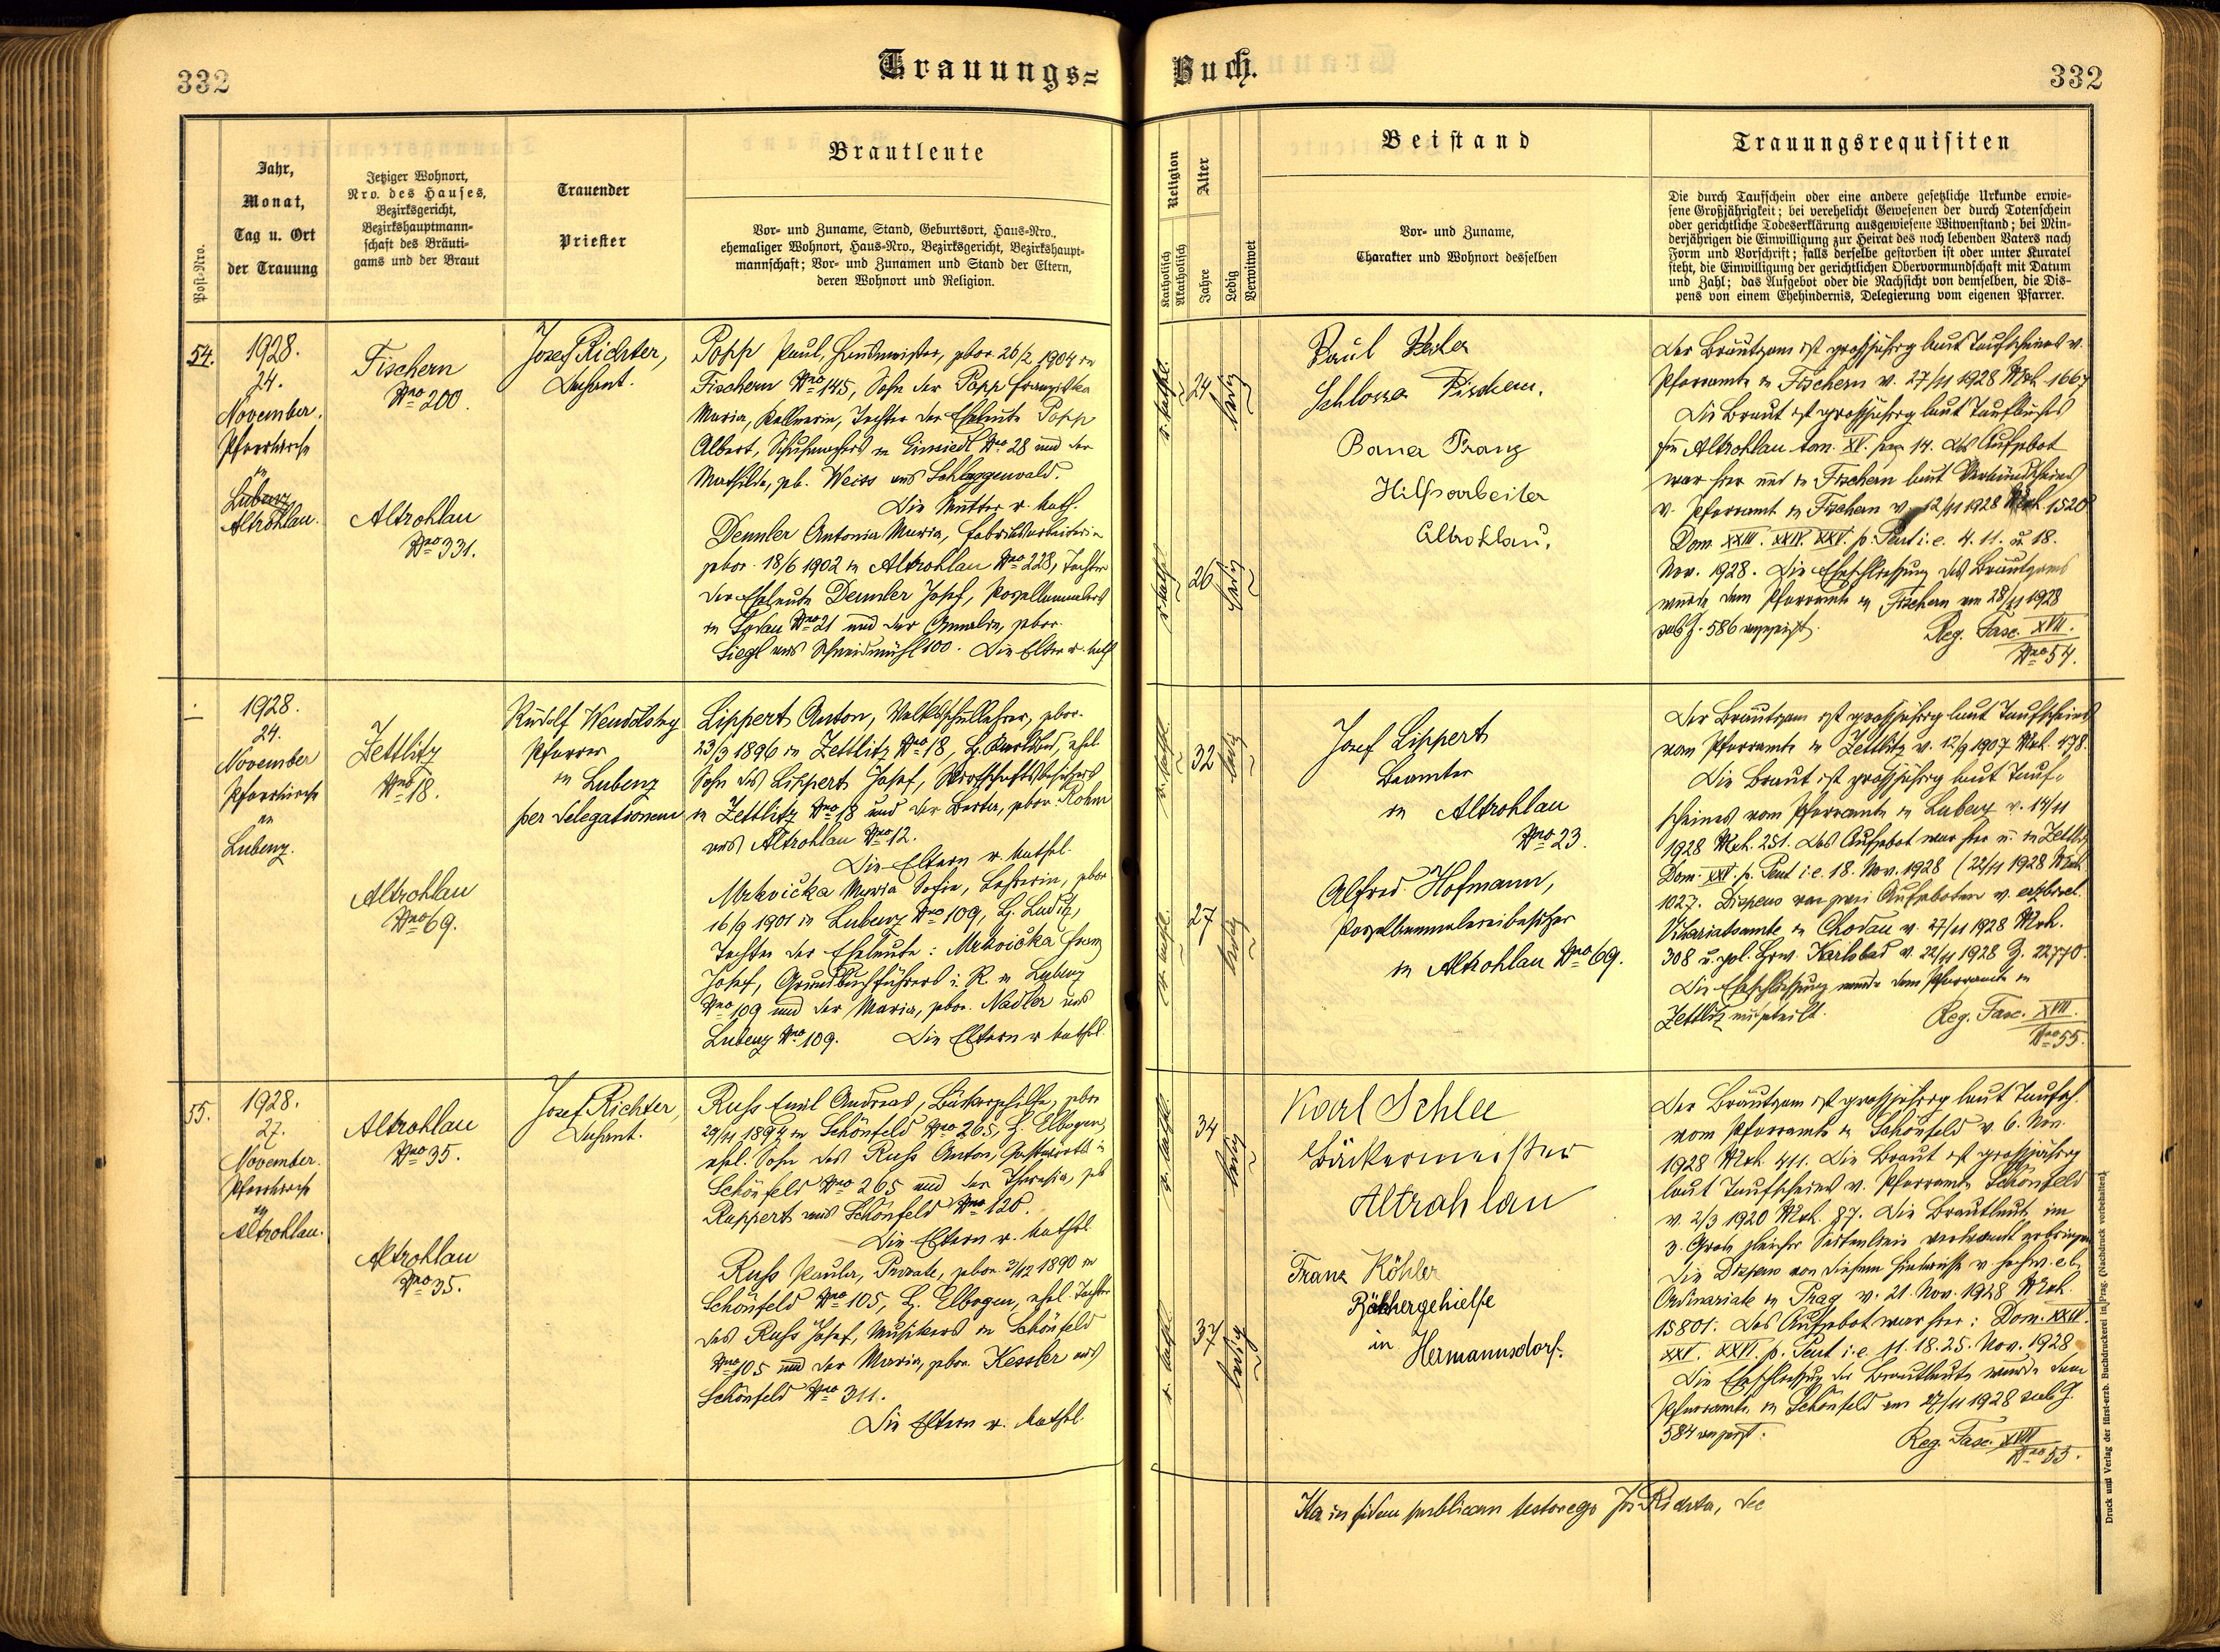 332
Trauungs=
Buch.
332
Post-Nro.
Jahr,
Monat,
Tag u. Ort
der Trauung
Jetziger Wohnort,
Nro. des Hauses,
Bezirksgericht,
Bezirkshauptmann-
schaft des Bräuti-
gams und der Braut
Trauender
Priester
Brautleute
Vor- und Zuname, Stand, Geburtsort, Haus-Nro.,
ehemaliger Wohnort, Haus-Nro., Bezirksgericht, Bezirkshaupt-
mannschaft; Vor- und Zunamen und Stand der Eltern,
deren Wohnort und Religion.
Religion
Katholisch
Akatholisch
Alter
Jahre
Ledig
Verwitwet
Beistand
Vor- und Zuname,
Charakter und Wohnort desselben
Trauungsrequisiten
Die durch Taufschein oder eine andere gesetzliche Urkunde erwie-
sene Großjährigkeit; bei verehelicht Gewesenen der durch Totenschein
oder gerichtliche Todeserklärung ausgewiesene Witwenstand; bei Min-
derjährigen die Einwilligung zur Heirat des noch lebenden Vaters nach
Form und Vorschrift; falls derselbe gestorben ist oder unter Kuratel
steht, die Einwilligung der gerichtlichen Obervormundschaft mit Datum
und Zahl; das Aufgebot oder die Nachsicht von demselben, die Dis-
pens von einem Ehehindernis, Delegierung vom eigenen Pfarrer.
54.
1928.
24.
November.
Pfarrkirche
in
Lubenz
Altrohlau.
Fischern
Nro 200.
Altrohlau
Nro 331.
Josef Richter,
Dechant.
Popp Paul, gebor. 26/2 1904 in
Fischern Nro 145, Sohn der Popp Franziska
Maria, Kellnerin, Tochter der Eheleute Popp
Albert, Schuhmachers in Einsiedl Nro 28 und der
Mathilde, geb. Weiss aus Schlaggenwald.
Die Mutter r. kath.
Demler Antonia Maria, Fabriksarbeiterin
gebor. 18/6 1902 in Altrohlau Nro 228, Tochter
der Eheleute Demler Josef, Porzellanmalers
in Nro 21 und der Amalia, gebor.
Siegl aus Schneidmühl 100. Die Eltern r. kath.
r. kathl.
24
ledig
r. kathl.
26
ledig
Paul
Schlosser Fischern.
Franz
Hilfsarbeiter
Altrohlau.
Der Bräutigam ist grossjährig laut Taufscheines v.
Pfarramte in Fischern v. 27/11 1928 Mrk. 1667
Die Braut ist grossjährig laut Taufbuches
Altrohlau tom. XV. pag 14. Das Aufgebot
war hier und in Fischern laut Verkündscheines
v. Pfarramt in Fischern v. 12/11 1928 1520
Dom. XXIII. XXIV. XXV. p. Pent i. e. 4. 11. u. 18.
Nov. 1928. Die Eheschliessung des Bräutigams
wurde dem Pfarramte in Fischern am 28/11 1928
sub Z. 586 angezeigt.
Reg. Fasc. XVII.
Nro 54.
1928.
24.
November
Pfarrkirche
in
Lubenz.
Zettlitz
Nro 18.
Altrohlau
Nro 69.
Rudolf
Pfarrer
in Lubenz
per delegationem
Lippert Anton, Volksschullehrer, gebor.
23/3 1896 in Zettlitz Nro 18, B. Karlsbad, ehel.
Sohn des Lippert Josef, Wirtschaftsbesitzers
in Zettlitz Nro 18 und der Berta, gebor. Röhm
aus Altrohlau Nro 12.
Die Eltern r. kathol.
Mrkvička Maria Sofie, Lehrerin, gebor
16/9 1901 in Lubenz Nro 109, B. Luditz,
Tochter der Eheleute: Mrkvička Franz
Josef, Grundbuchführers i. R. in Lubenz
Nro 109 und der Maria, gebor. Nadler aus
Lubenz Nro 109. Die Eltern r. kathol.
r. kathl.
32
ledig
r. kathl.
27
ledig
Josef Lippert
Beamter
in Altrohlau
Nro 23.
Alfred Hofmann,
Porzellanmalereibesitzer
in Altrohlau Nro 69.
Der Bräutigam ist grossjährig laut Taufscheines
vom Pfarramte in Zettlitz v. 12/9 1907 Mrk. 478.
Die Braut ist grossjährig laut Tauf-
scheines vom Pfarramte in Lubenz v. 14/11
1928 Mrk. 251. Das Aufgebot war hier u. in Zettlitz
Dom. XXV. p. Pent i. e. 18. Nov. 1928 (22/11 1928 Mrk.
1027. Dispens von zwei Aufgeboten v. erzbisch.
Vikariatsamte in Chodau v. 27/11 1928 Mrk.
308 u. pol. Karlsbad v. 22/11 1928 Z. 22770.
Die Eheschliessung wurde dem Pfarramte in
Zettlitz mitgeteilt.
Reg. Fasc. XVII.
Nro 55.
55.
1928.
27.
November.
Pfarrkirche
in
Altrohlau.
Altrohlau
Nro 35.
Altrohlau
Nro 35.
Josef Richter,
Dechant.
Russ Emil Andreas, Bäckergehilfe, gebor
29/11 1894 in Schönfeld Nro 265, B. Elbogen,
ehel. Sohn des Russ Anton, Gastwirtes in
Schönfeld Nro 265 und der Theresia, geb
Ruppert aus Schönfeld Nro 120.
Die Eltern r. kathol
Russ Paula, Private, gebor. 3/12 1890 in
Schönfeld Nro 105, B. Elbogen, ehel. Tochter
des Russ Josef, Musikers in Schönfeld
Nro 105 und der Maria, gebor. Kessler aus
Schönfeld Nro 311.
Die Eltern r. kathol.
r. kathl.
34
ledig
r. kathl.
37
ledig
Karl Schlee
Bäckermeister
Altrohlau
Franz Köhler
Bäckergehielfe
in
Hermannsdorf.
Der Bräutigam ist grossjährig laut Taufsch.
vom Pfarramte in Schönfeld v. 6. Nov.
1928 Mrk. 411. Die Braut ist grossjährig
laut Taufscheines v. Pfarramte Schönfeld
v. 2/3 1920 Mrk. 87. Die Brautleute im
3. Grade gleicher Seitenlinie verwandt
die Dispens von diesem Hindernisse v. hochw. eb.
Ordinariate in Prag v. 21. Nov. 1928 Mrk.
15801. Das Aufgebot war hier: Dom. XXIV.
XXV. XXVI. p. Pent i. e. 11. 18. 25. Nov. 1928
Die Eheschliessung der Brautleute wurde dem
Pfarramte in Schönfeld am 27/11 1928 sub Z.
584 angezeigt.
Reg. Fasc. XVII
Nro 55.
Ita in fidem publicam testor ego Jos Richter, Dec
Druck und Verlag der fürst-erzb. Buchdruckerei in Prag (Nachdruck vorbehalten)